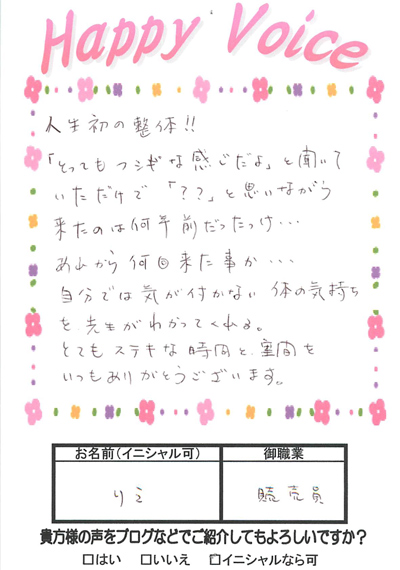 Happy Voice
人生初の整体!!
「とってもフシギな感じだよ」と聞いて
いただけで「??」と思いながら
来たのは何年前だったっけ・・・
あれから何回来た事か・・・
自分では気が付かない体の気持ち
を先生がわかってくれる。
とてもステキな時間と空間を
いつもありがとうございます。
お名前(イニシャル可)
御職業
りえ
販売員
貴方様の声をブログなどでご紹介してもよろしいですか?
□はい □いいえ □イニシャルなら可